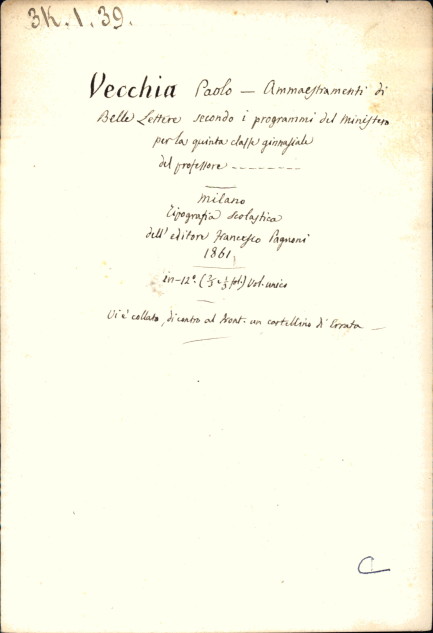 3K.1.39.
Vecchia Paolo — Ammaestramenti di
Belle Lettere secondo i programmi del Ministero
per la quinta classe ginnasiale
del professore --------
Milano
Tipografia scolastica
dell'editore Francesco Pagnoni
1861
in-12° ( fol.) Vol. unico
Vi è collato, di contro al front. un cartellino di Errata —
C